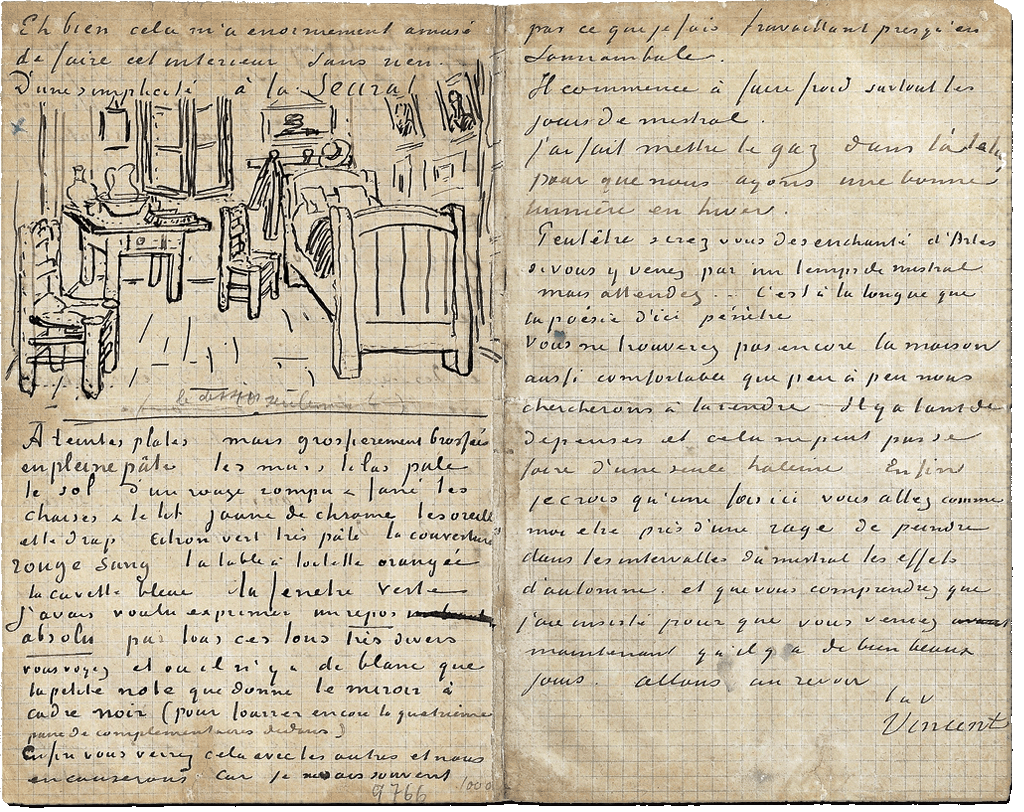 Eh bien cela m'a enormement amusé
de faire cet interieur sans rien.
D'une simplicité à la Seurat
le dessin seulement
A teintes plates mais grossierement brossées
en pleine pâte les murs lilas pale
le sol d'un rouge rompu & fané les
chaises & le lit jaune de chrome les oreillers
et le drap citron vert très pâle la couverture
rouge sang la table à toilette orangée
la cuvette bleue la fenetre verte
J'avais voulu exprimer un repos
absolu par tous ces tons très divers
vous voyez et où il n'y a de blanc que
la petite note que donne le miroir à
cadre noir (pour fourrer encore la quatrième
paire de complementaires dedans)
Enfin vous verrez cela avec les autres et nous
en causerons car je ne sais souvent
9766 1000
par ce que je fais travaillant presqu'en
somnambule.
Il commence à faire froid surtout les
jours de mistral.
J'ai fait mettre le gaz dans l'atelier
pour que nous ayons une bonne
lumière en hiver.
Peutêtre serez vous desenchanté d'Arles
si vous y venez par un temps de mistral
mais attendez... C'est à la longue que
la poësie d'ici pénètre
Vous ne trouverez pas encore la maison
aussi comfortable que peu à peu nous
chercherons à la rendre. Il y a tant de
depenses et cela ne peut pas se
faire d'une seule haleine Enfin
je crois qu'une fois ici vous allez comme
moi etre pris d'une rage de peindre
dans les intervalles du mistral les effets
d'automne. et que vous comprendrez que
j'aie insisté pour que vous veniez
maintenant qu'il y a de bien beaux
jours. allons au revoir
t.à.v
Vincent